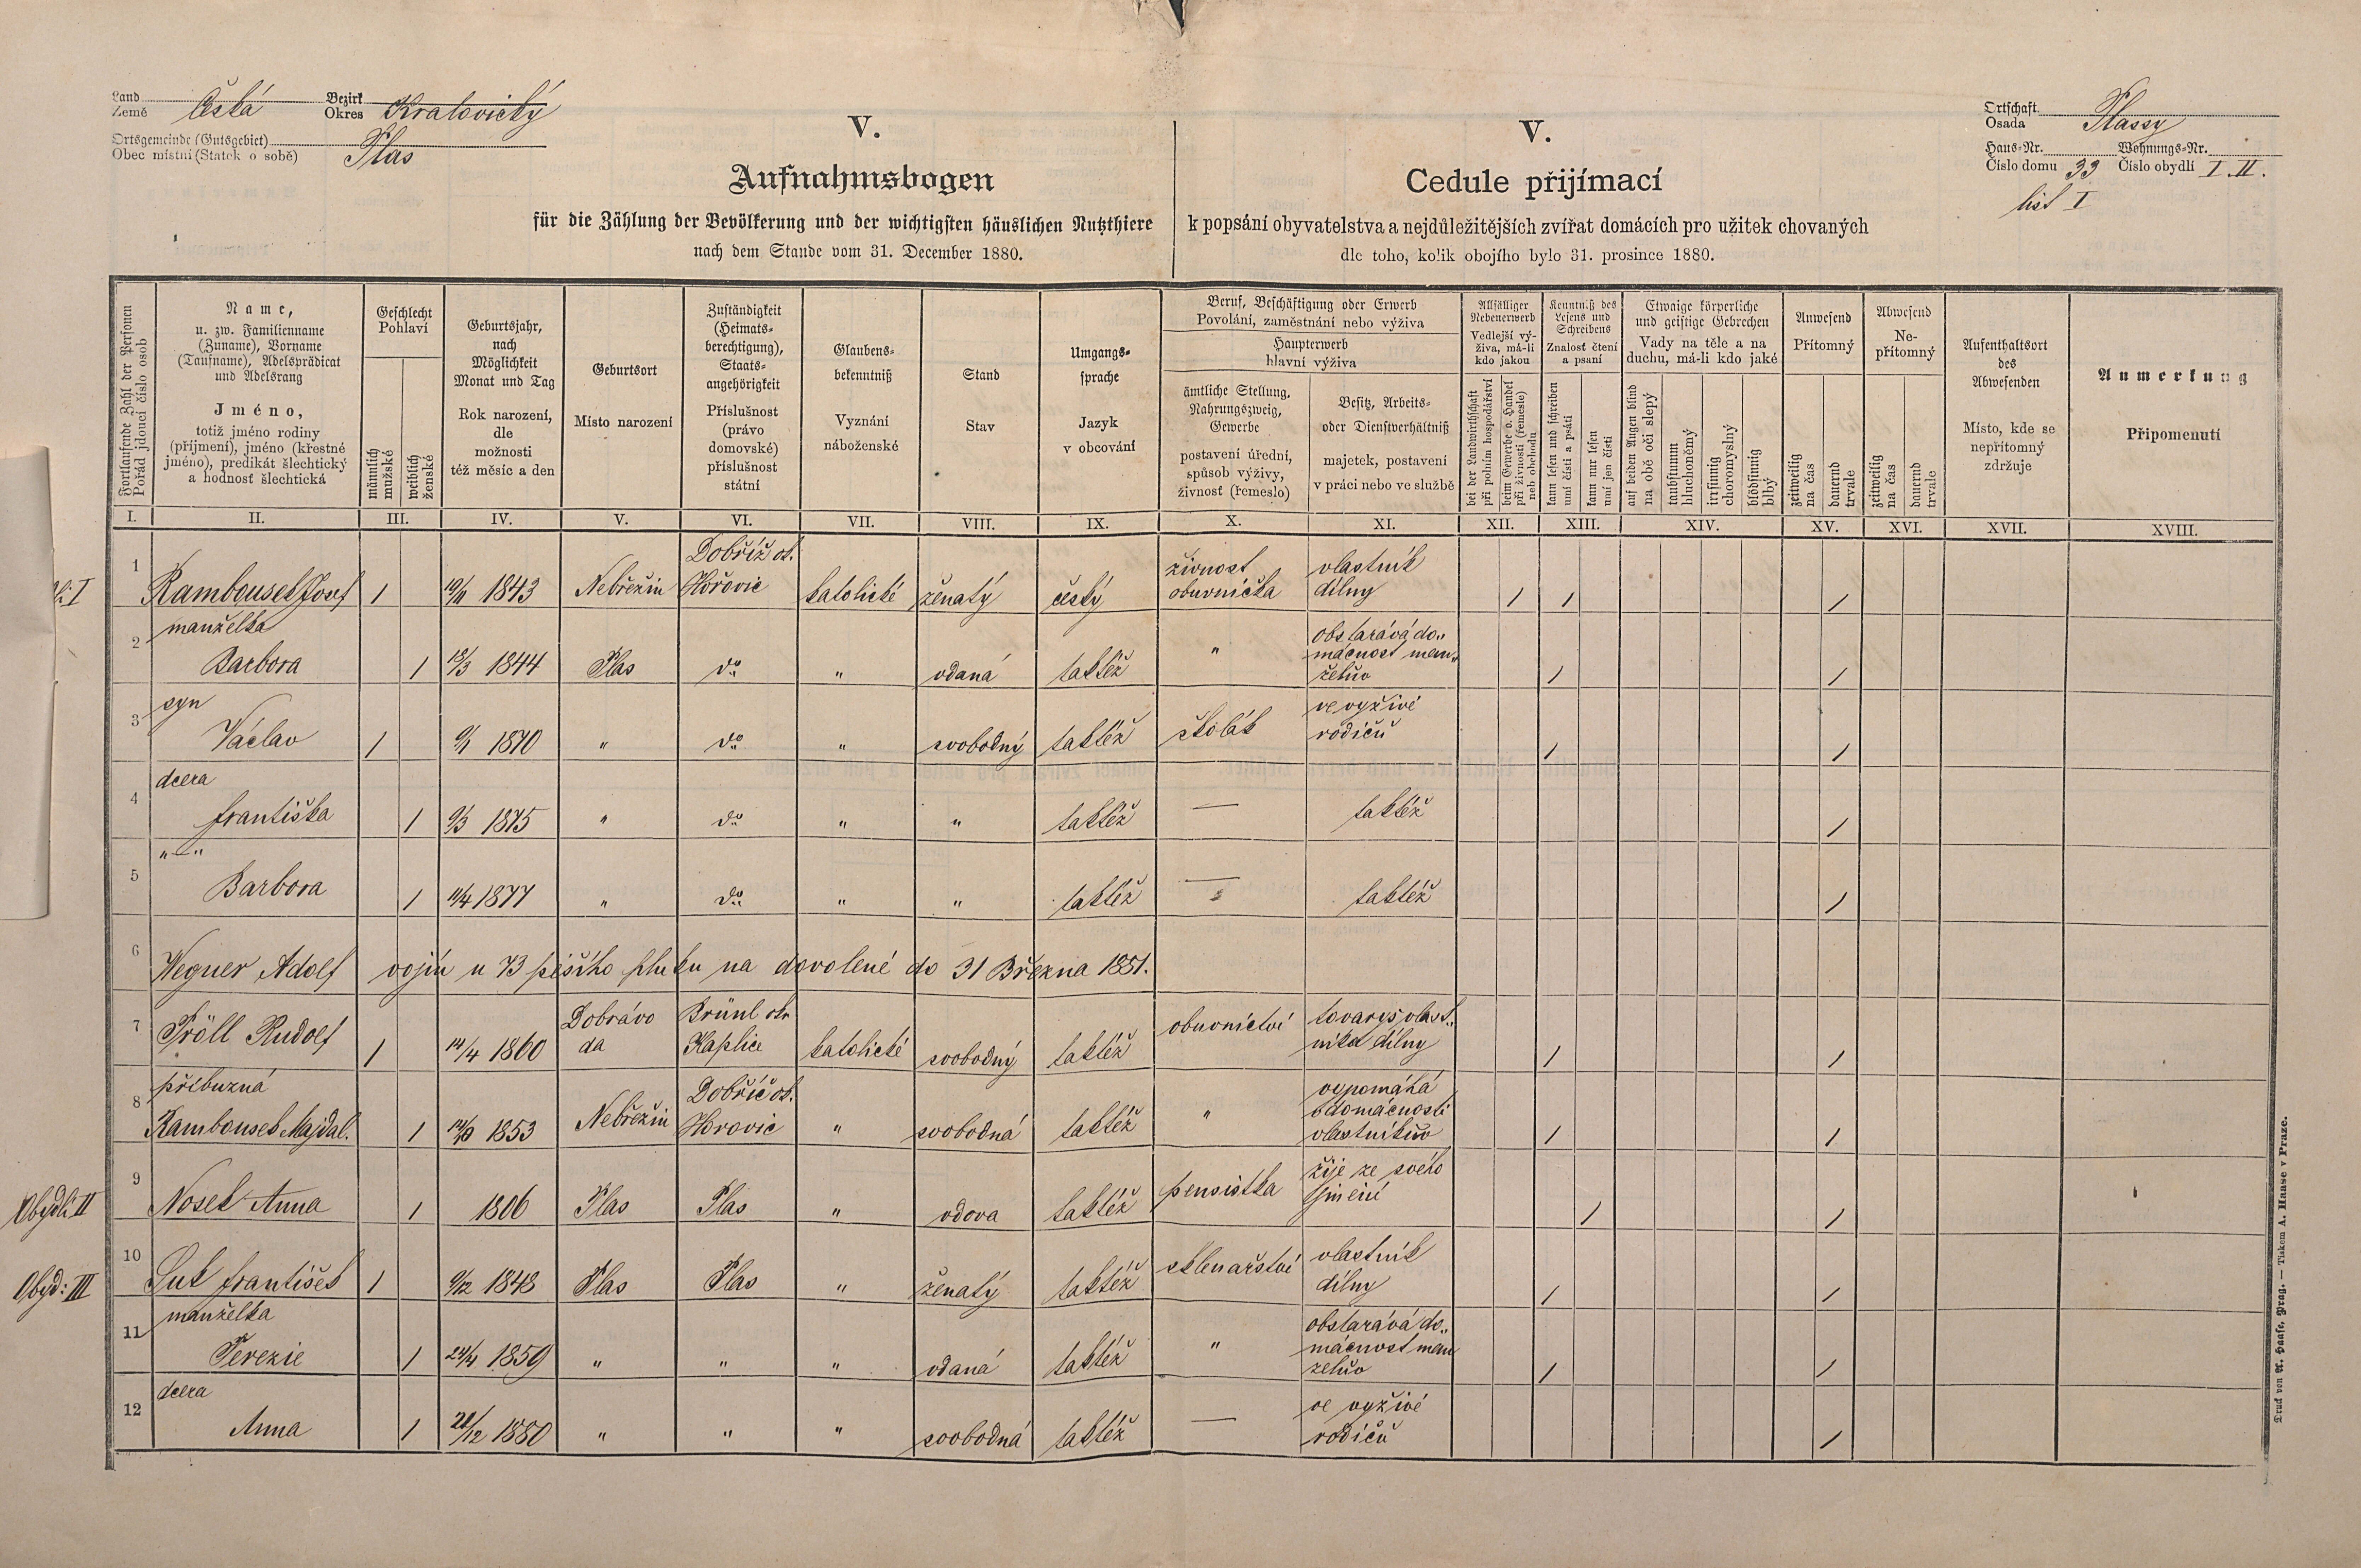 Land
Země Česká
Bezirk
Okres Kralovický
Ortsgemeinde (Gutsgebiet)
Obec místní (Statek o sobě) Plas
V.
Aufnahmsbogen
für die Zählung der Bevölkerung und der wichtigsten häuslichen Nutzthiere
nach dem Stande vom 31. December 1880.
V.
Cedule přijímací
k popsání obyvatelstva a nejdůležitějších zvířat domácích pro užitek chovaných
dle toho, kolik obojího bylo 31. prosince 1880.
Ortschaft
Osada Plassy
Haus-Nr. Wohnungs-Nr.
Číslo domu 33 Číslo obydlí I. II.
list I
Fortlaufende Zahl der Personen
Pořád jdoucí číslo osob
Name,
u. zw. Familienname
(Zuname), Vorname
(Taufname), Adelsprädicat
und Adelsrang
Jméno,
totiž jméno rodiny
(příjmení), jméno (křestné
jméno), predikát šlechtický
a hodnost šlechtická
Geschlecht
Pohlaví
männlich
mužské
weiblich
ženské
Geburtsjahr,
nach
Möglichkeit
Monat und Tag
Rok narození,
dle
možnosti
též měsíc a den
Geburtsort
Místo narození
Zuständigkeit
(Heimats-
berechtigung),
Staats-
angehörigkeit
Příslušnost
(právo
domovské)
příslušnost
státní
Glaubens-
bekenntniß
Vyznání
náboženské
Stand
Stav
Umgangs-
sprache
Jazyk
v obcování
Beruf, Beschäftigung oder Erwerb
Povolání, zaměstnání nebo výživa
Haupterwerb
hlavní výživa
ämtliche Stellung,
Nahrungszweig,
Gewerbe
postavení úřední,
spůsob výživy,
živnost (řemeslo)
Besitz, Arbeits-
oder Dienstverhältniß
majetek, postavení
v práci nebo ve službě
Allfälliger
Nebenerwerb
Vedlejší vý-
živa, má-li
kdo jakou
bei der Landwirthschaft
při polním hospodářství
beim Gewerbe o. Handel
při živnosti (řemesle)
neb obchodu
Kenntniß des
Lesens und
Schreibens
Znalost čtení
a psaní
kann lesen und schreiben
umí čísti a psáti
kann nur lesen
umí jen čísti
Etwaige körperliche
und geistige Gebrechen
Vady na těle a na
duchu, má-li kdo jaké
auf beiden Augen blind
na obě oči slepý
taubstumm
hluchoněmý
irrsinnig
choromyslný
blödsinnig
blbý
Anwesend
Přítomný
zeitweilig
na čas
dauernd
trvale
Abwesend
Ne-
přítomný
zeitweilig
na čas
dauernd
trvale
Aufenthaltsort
des
Abwesenden
Místo, kde se
nepřítomný
zdržuje
Anmerkung
Připomenutí
I. II. III. IV. V. VI. VII. VIII. IX. X. XI. XII. XIII. XIV. XV. XVI. XVII. XVIII.
1 Rambousek Josef 1 19/11 1843 Nebřežin Dobříž ok. Hořovic katolické ženatý český živnost obuvnička vlastník dílny 1 1 1
2 manželka Barbora 1 18/3 1844 Plas do " vdaná taktéž " obstarává do„ mácnost man„ želův 1 1
3 syn Václav 1 1870 " do " svobodný taktéž školák ve vyživě rodičů 1 1
4 dcera Františka 1 1875 " do " " taktéž — taktéž 1
5 "—" Barbora 1 11/4 1877 " do " " taktéž — taktéž 1
6 Wegner Adolf vojín u 73 pěšího pluku na dovolené do 31 Března 1881.
7 Pröll Rudolf 1 14/4 1860 Dobrávo da Brünl okr Kaplice katolické svobodný taktéž obuvnictví tovaryš vlast„ nika dílny 1 1
8 příbuzná Rambousek Majdal. 1 1853 Nebřežin Dobříč ok. Horovic " svobodná taktéž " vypomáhá v domácnosti vlastníkův 1 1
Obydlí II
9 Nosek Anna 1 1806 Plas Plas " vdova taktéž pensistka žije ze svého jmění 1 1
Obyd: III
10 Suk František 1 9/12 1848 Plas Plas " ženatý taktéž sklenařství vlastník dílny 1 1
11 manželka Terezie 1 24/4 1859 " " " vdaná taktéž " obstarává do„ mácnost man želův 1 1
12 dcera Anna 1 21/12 1880 " " " svobodná taktéž — ve vyživě rodičů 1
Druck von A. Haase, Prag. — Tiskem A. Haase v Praze.